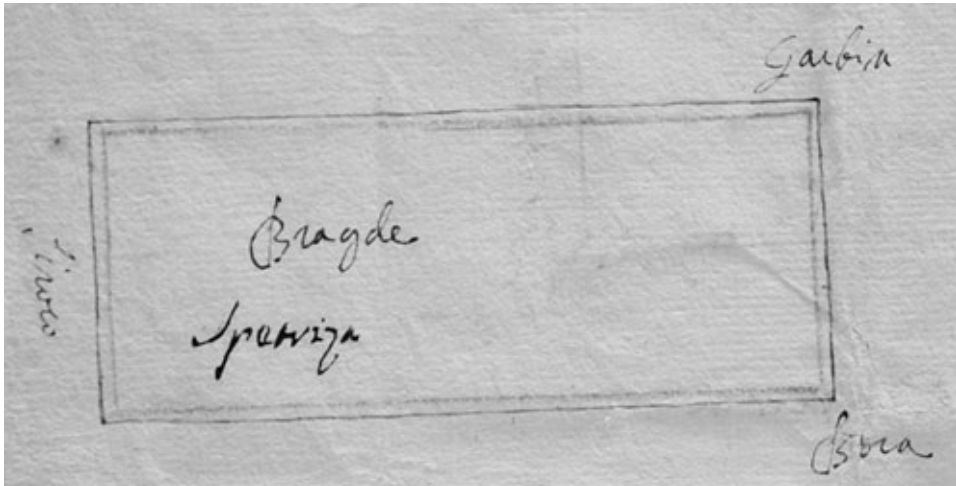 Garbin
Siroco
Bragde
Sperviza
Bora